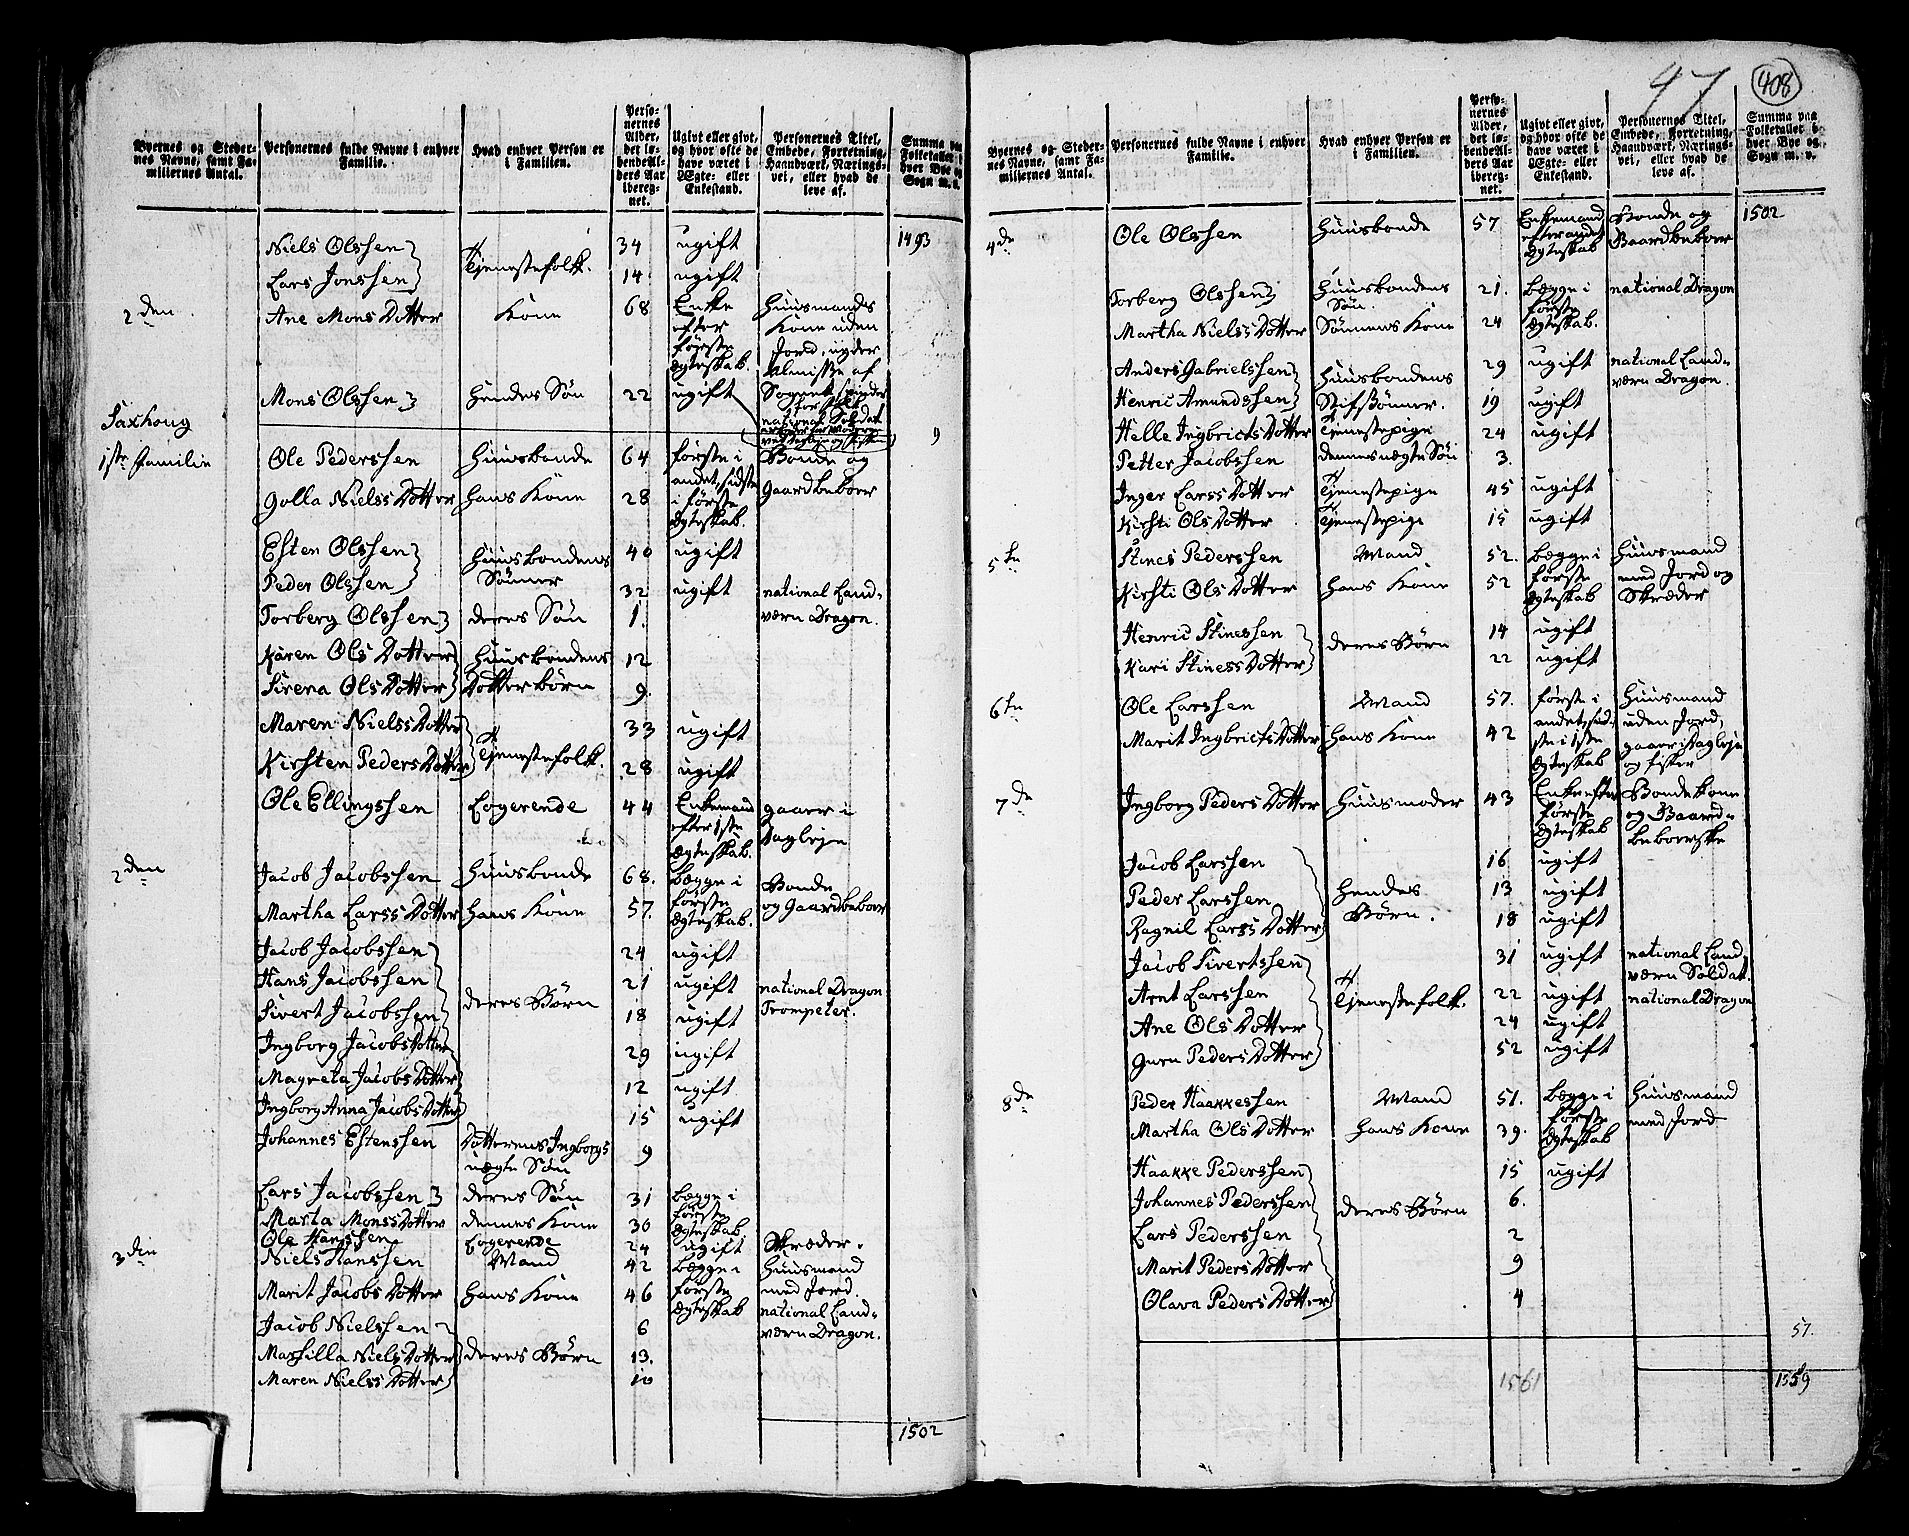 Byernes og Stedernes Navne, samt Familiernes Antal. Personernes fulde Navne i enhver Familie. Hvad enhver Person er i Familien. Personernes Alder, det løbende Alders Aar iberegnet. Ugivt eller givt, og hvor ofte de have været i Ægte- eller Enkestand. Personernes Titel, Embede, Forretning, Haandværk, Næringsvei, eller hvad de leve af. Summa paa Folketallet i hver Bye og Sogn m. v.
Niels Olssen 34 ugift 1493
Tjenestefolk.
Lars Jonssen 14 ugift
2den Ane Mons Dotter Kone 68 Enke efter første Ægteskab. Huusmands Kone uden Jord, nyder Almisse af
Mons Olssen hendes Søn 22 ugift national Soldat 9
Saxhoug
1ste Familie Ole Pederssen Huusbonde 64 første i andet, sidste Bonde og
Golla Niels Dotter hans Kone 28 i første Ægteskab. Gaardbeboer
Esten Olssen 40 ugift
Huusbondens Sønner
Peder Olssen 32 ugift national Landværn Dragon.
Torberg Olssen deres Søn 1.
Karen Ols Dotter Huusbondens 12
Sirena Ols Dotter Dotterbørn 9.
Maren Niels Dotter 33 ugift
Tjenestefolk.
Kirsten Peders Dotter 28 ugift
Ole Ellingssen Logerende 44 Enkemand efter 1ste Ægteskab. gaaer i Dagleje
2den Jacob Jacobssen Huusbonde 68. begge i første Bonde
Martha Larss Dotter hans Kone 57. Ægteskab. og Gaardbeboer
Jacob Jacobssen 24 ugift
Hans Jacobssen 21 ugift national Dragon
deres Børn
Sivert Jacobssen 18 ugift Trompeter.
Ingborg Jacobs Dotter 29 ugift
Magreta Jacobs Dotter 12 ugift
Ingborg Anna Jacobs Dotter 15 ugift
Johannes Estenssen Dotterens Ingborgs uægte Søn 9
Lars Jacobssen deres Søn 31 begge i første
Marta Monss Dotter dennes Kone 30 Ægteskab.
Ole Hanssen Logerende 24 ugift Skræder.
3die Niels Hanssen Mand 42 begge i Huusmand med Jord.
Marit Jacobs Dotter hans Kone 46 første Ægteskab national Landværn Dragon.
Jacob Nielssen 6
Marsilla Niels Dotter deres Børn 13.
Maren Nielss Dotter 10
1502
47 408
Byernes og Stedernes Navne, samt Familiernes Antal. Personernes fulde Navne i enhver Familie. Hvad enhver Person er i Familien. Personernes Alder, det løbende Alders Aar iberegnet. Ugivt eller givt, og hvor ofte de have været i Ægte- eller Enkestand. Personernes Titel, Embede, Forretning, Haandværk, Næringsvei, eller hvad de leve af. Summa paa Folketallet i hver Bye og Sogn m. v.
4de Ole Olssen Huusbonde 57 Enkemand efter andet Ægteskab Bonde og Gaardbeboer 1502
Torberg Olssen Huusbondens Søn 21. begge i første national Dragon
Martha Nielss Dotter Sønnens Kone 24 Ægteskab.
Anders Gabrielssen Huusbondens 29 ugift national Landværn Dragon.
Henric Amundssen Stifsønner. 19 ugift
Helle Ingbricts Dotter Tjenestepige 24 ugift
Petter Jacobssen dennes uægte Søn 3.
Inger Larss Dotter Tjenestepige 45 ugift
Kirsti Ols Dotter Tjenestepige 15 ugift
5te Stines Pederssen Mand 52. begge i Huusmand
Kirsti Ols Dotter hans Kone 52 første Ægteskab med Jord og Skræder
Henric Stinessen 14 ugift
deres Børn
Kari Stiness Dotter 22 ugift
6te Ole Larssen Mand 57. første i andet, sid- Huusmand uden Jord,
Marit Ingbricts Dotter hans Kone 42 ste i 1ste Ægteskab gaaer i Dagleje og fisker
7de Ingborg Peders Dotter Huusmoder 43 Enke efter første Ægteskab Bondekone og Gaardbeboerske
Jacob Larssen 16 ugift
Peder Larssen hendes Børn. 13 ugift
Ragnil Larss Dotter 18 ugift
Jacob Sivertssen 31 ugift national Landværn Soldat.
Arnt Larssen Tjenestefolk. 22 ugift national Dragon
Ane Ols Dotter 24 ugift
Guru Peders Dotter 52 ugift
8de Peder Haakkessen Mand 51. begge i Huusmand
Martha Ols Dotter hans Kone 39. første Ægteskab med Jord
Haakke Pederssen 15 ugift
Johannes Pederssen 6.
deres Børn
Lars Pederssen 2
Marit Peders Dotter 9
Olava Peders Dotter 4
57.
1561 1559